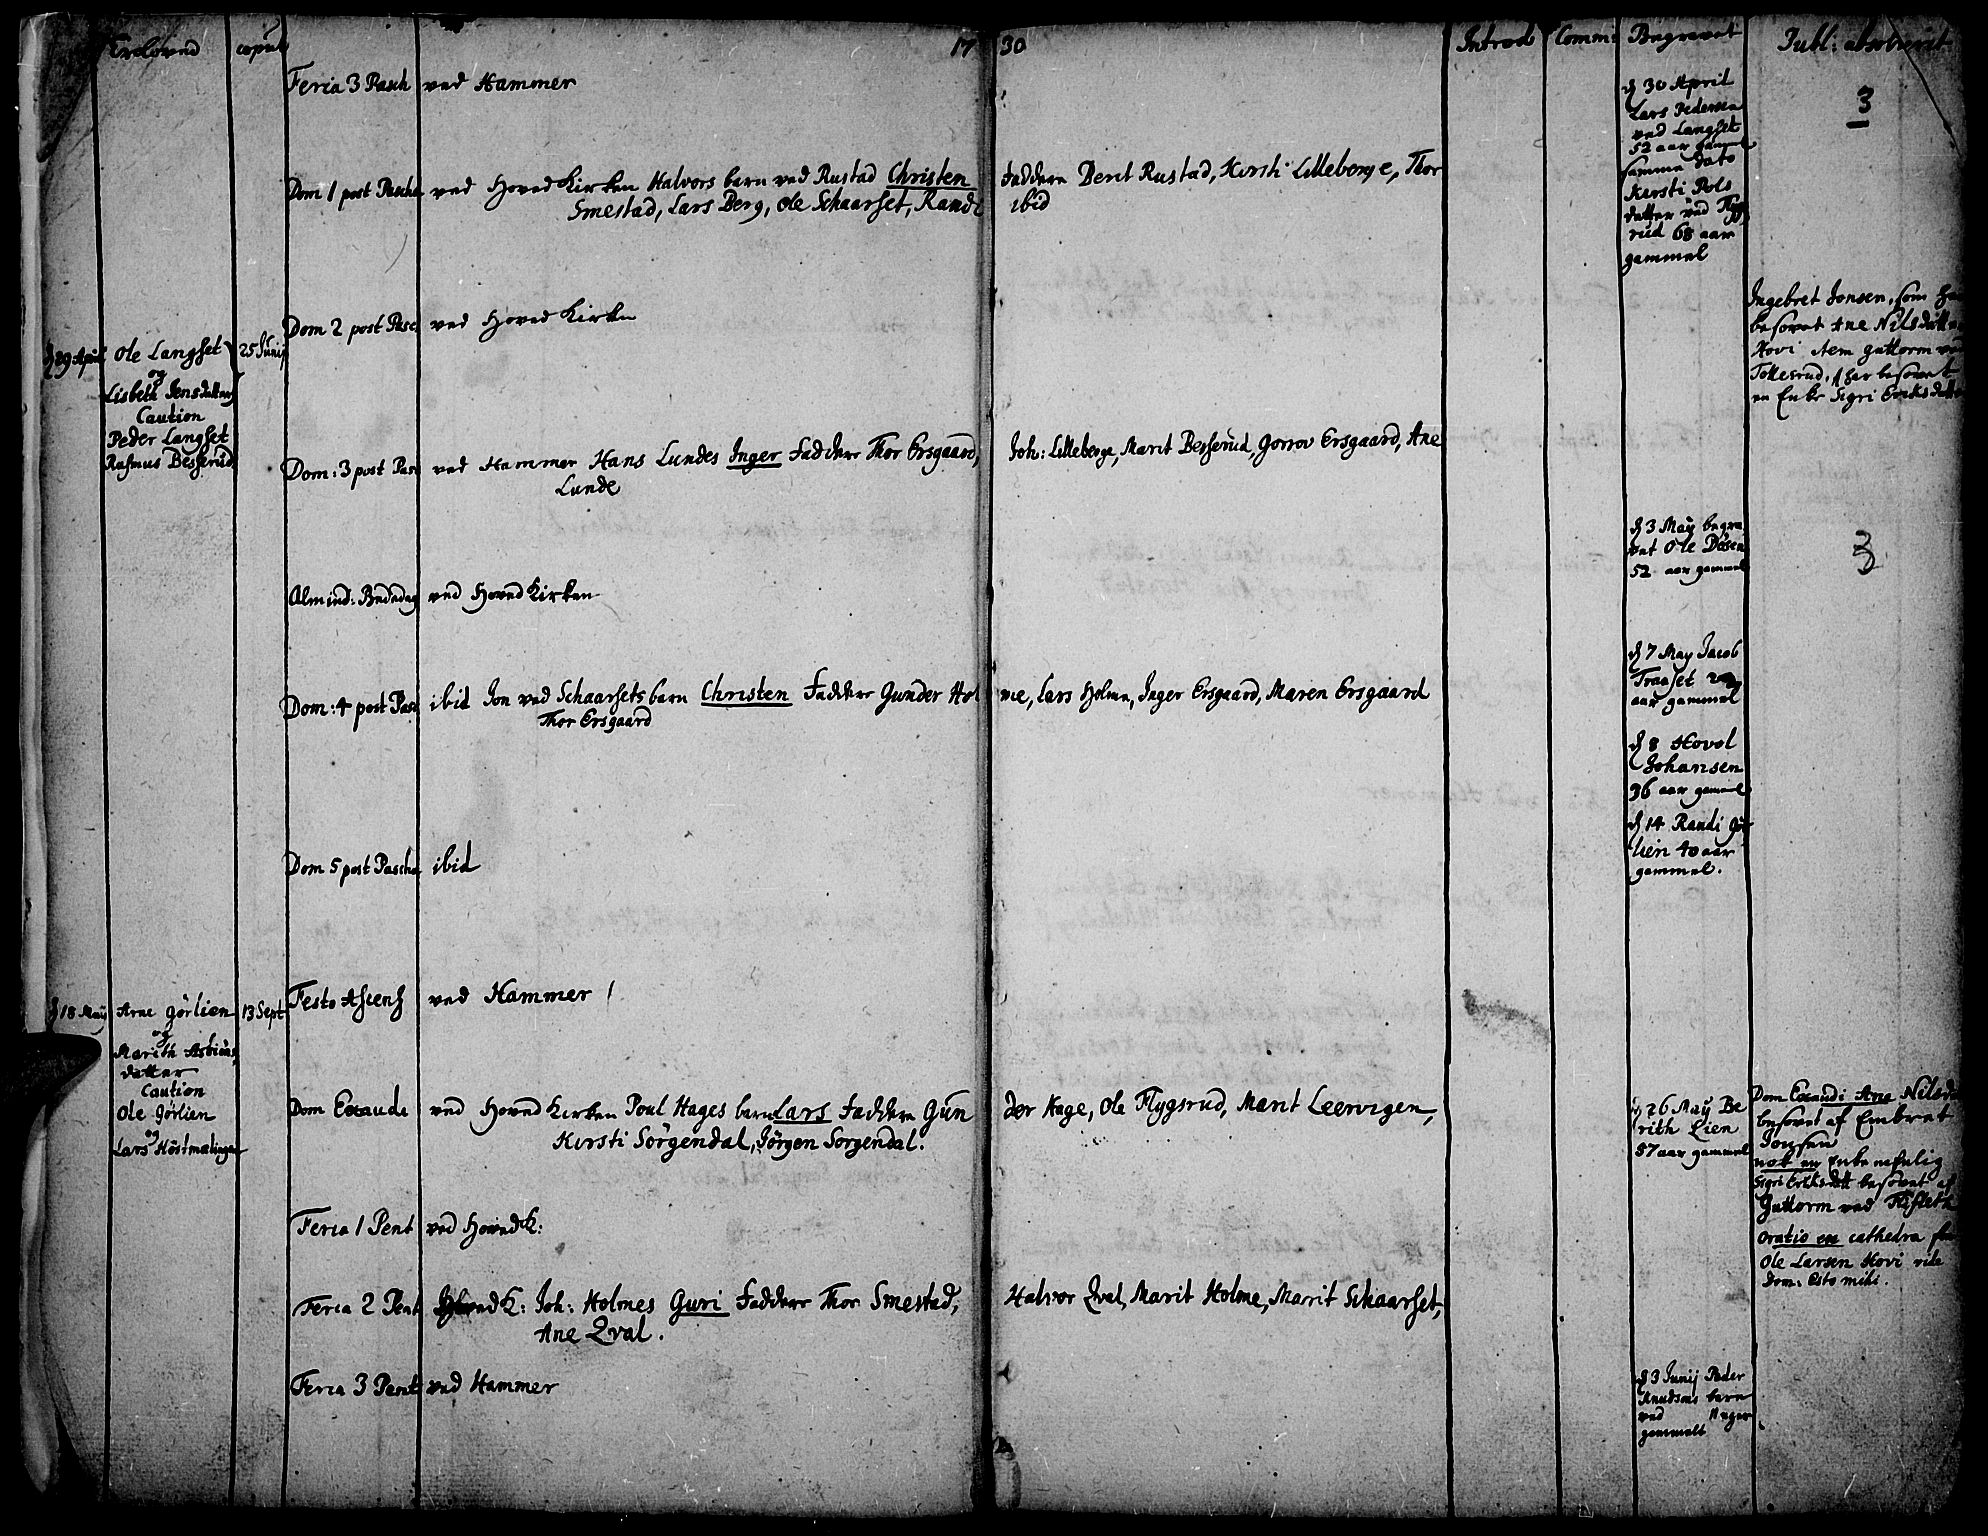 Troloved copul 17 30 Introd Comm: Begravet Publ: absolverit
Feria 3 Pasch ved Hammer
d 30 April
Lars Pedersen
ved Langset
52 aar gammel
samme dato
Kersti Pols
datter ved
rud 68 aar
gammel
3
Dom 1 post Pascha ved Hoved Kirken Halvors barn ved Rustad Christen Faddere Berit Rustad, Kirsti Lilleberge, Thor
Smestad, Lars Berg, Ole Schaarset, Randi ibid
Dom 2 post Pasc ved Hoved Kirken
Ingebret Jonsen, som har
besovet Ane Nilsdatter
Hovi item Guttorm ved
Tollesrud, som har besovet
en Enke Sigri Eriksdatter
d 29 April Ole Langset 25 Junij
og
Lisbeth Jensdatter
Caution
Peder Langset
Rasmus Besserud
Dom: 3 post Pasc ved Hammer Hans Lundes Inger Faddere Thor Ersgaard, Joh: Lilleberge, Marit Besserud, Gorrov Ersgaard, Ane
Lunde
d 3 May begra
vet Ole Døsen
52 aar gammel
3
Almind: Bededag ved Hoved Kirken
d 7 May Jacob
Traaset
aar gammel
Dom: 4 post Pasc ibid Jon ved Schaarsets barn Christen Faddere Gunder Hol me, Lars Holmen, Inger Ersgaard, Maren Ersgaard
Thor Ersgaard
d 8 Hovol
Johansen
36 aar gammel
d 14 Randi Gør
lien 40 aar
gammel.
Dom 5 post Pascha ibid
Festo Ascens ved Hammer
d 18 Maij Arne Gørlien 13 Sept
og
Marith Asbiøns
datter
Caution
Ole Gørlien
og
Lars Høstmælingen
Dom Exaudi ved Hoved Kirken Poul Hages barn Lars Faddere Gun der Hage, Ole Flygsrud, Marit Leervigen,
Kirsti Sörgendal, Jörgen Sorgendal.
d 26 Maij Be
rith Lien
57 aar gammel
Dom Exaudi Ane Nilsda
besovet af Embret
Jonsen
nok en Enke nefnlig
Sigri Eriksdatt besovet af
Guttorm ved
Oratio ex cathedra
Ole Larsen Hovi
Dom: Esto mihi.
Feria 1 Pent ved Hoved K:
Feria 2 Pent Hoved K: Joh: Holmes Guri Faddere Thor Smestad, Halvor Qval, Marit Holme, Marit Schaarset,
Ane Qval.
Feria 3 Pent ved Hammer
d 3 Junij Peder
Knudsens barn
ved 11 uger
gammelt